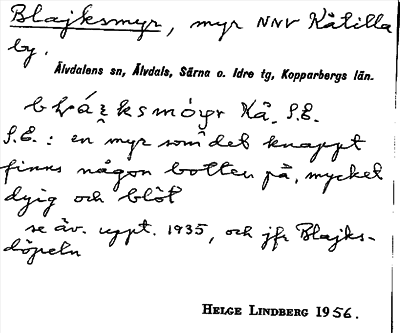 Blajksmyr, myr NNV Kåtilla
by.
Älvdalens sn, Älvdals, Särna o. Idre tg, Kopparbergs län.
Kå. S.E.
S.E.: en myr som det knappt
finns någon botten på, mycket
dyig och blöt
se äv. uppt. 1935, och jfr Blajks-
döpeln
HELGE LINDBERG 1956.